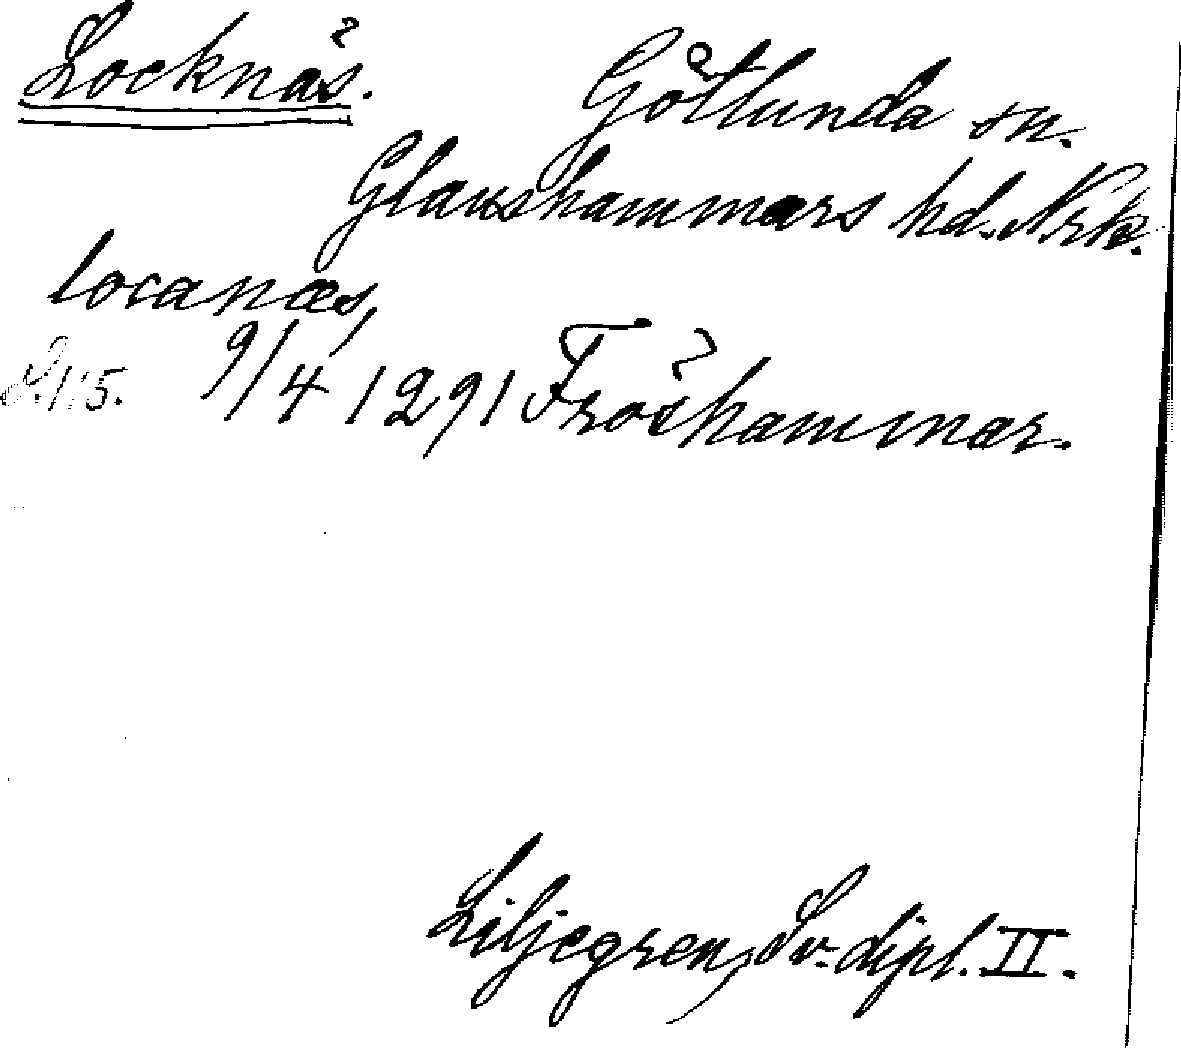 Locknäs.
Götlunda sn.
Glanshammars hd. Nrk.
locanæs,
9/4 1291 Fröshammar.
S. 115.
Liljegren, Sv. dipl. II.